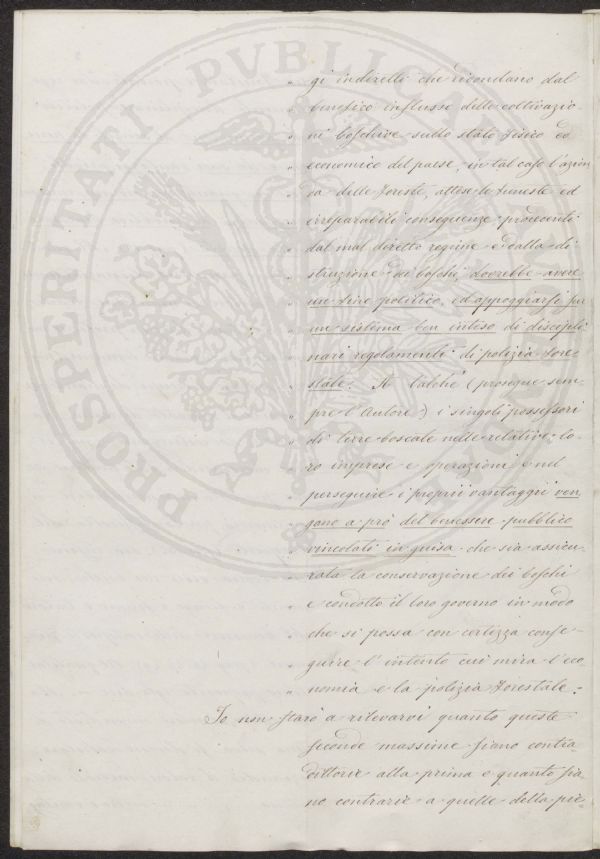 " gi indiretti che ridondano dal
" benefico influsso delle coltivazio
" ni boschive sullo stato fisico ed
" economico del paese, in tal caso l'azien
" da delle foreste, attese le funeste ed
" irreparabili conseguenze provenienti
" dal mal diretto regime e dalla di
" struzione dei boschi, dovrebbe avere
" un fine politico, ed appoggiarsi su
" un sistema ben inteso di discipli
" nari regolamenti di polizia fore
" stale. A talchè (prosegue sem
" pre l'Autore) i singoli possessori
" di terre boscate nelle relative lo-
" ro imprese e operazioni e nel
" perseguire i proprii vantaggii ven
" gano a prò del benessere pubblico
" vincolati in guisa che sia assicu-
" rata la conservazione dei boschi
" e condotto il loro governo in modo
" che si possa con certezza conse-
" guire l'intento cui mira l'eco
" nomia e la polizia forestale:
Io non starò a rilevarvi quanto queste
seconde massime siano contra
dittorie alla prima e quanto sia
no contrarie a quelle della pie-
PROSPERITATI PVBLICAE